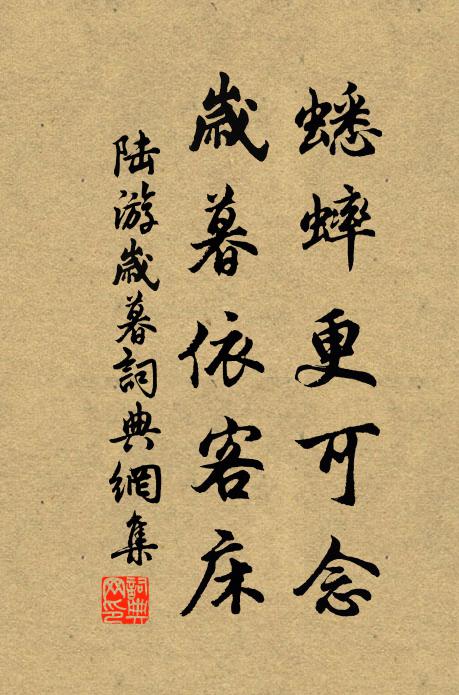 蟋蟀更可念
歲暮依客床
陸游歲暮詞典網集
詞典網印